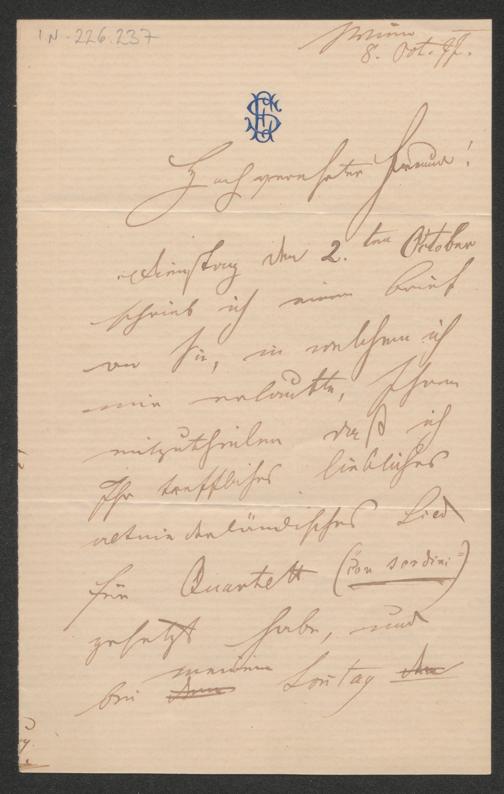 IN-226.237
Wien
8. Oct. 97.
Hochverehrter Freund!
Dienstag den 2.ten October
schrieb ich einen Brief
an Sie, in welchem ich
mir erlaubte, Ihnen
mitzutheilen daß ich
Ihr treffliches liebliches
altniederländisches Lied
für Quartett (con sordini)
gesetzt habe, und
meinem
bei dem Sontag den